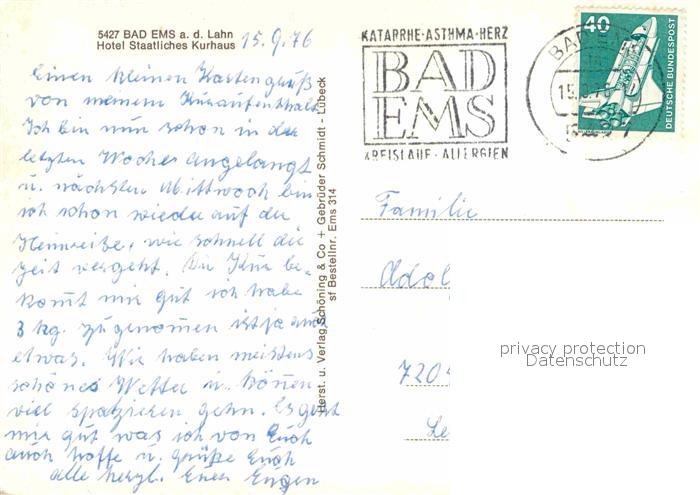 5427 BAD EMS a. d. Lahn
Hotel Staatliches Kurhaus 15.9.76
Einen kleinen Kartengruß
von meinem Kuraufenthalt
Ich bin nun schon in der
letzten Woche angelangt
u. nächsten Mittwoch bin
ich schon wieder auf der
Heimreiße, wie schnell die
Zeit vergeht. Die Kur be-
komt mir gut ich habe
3 kg. zugenomen ist ja auch
etwas. Wir haben meistens
schönes Wetter u. können
viel spatzieren gehn. Es geht
mir gut was ich von Euch
auch hoffe u. grüße Euch
alle herzl. Euer Eugen
Herst. u. Verlag Schöning & Co + Gebrüder Schmidt - Lübeck
sf Bestellnr. Ems 314
KATARRHE·ASTHMA·HERZ
BAD
EMS
KREISLAUF·ALLERGIEN
BAD
15.9.76
40
DEUTSCHE BUNDESPOST
Familie
Adol
720
Le
privacy protection
Datenschutz